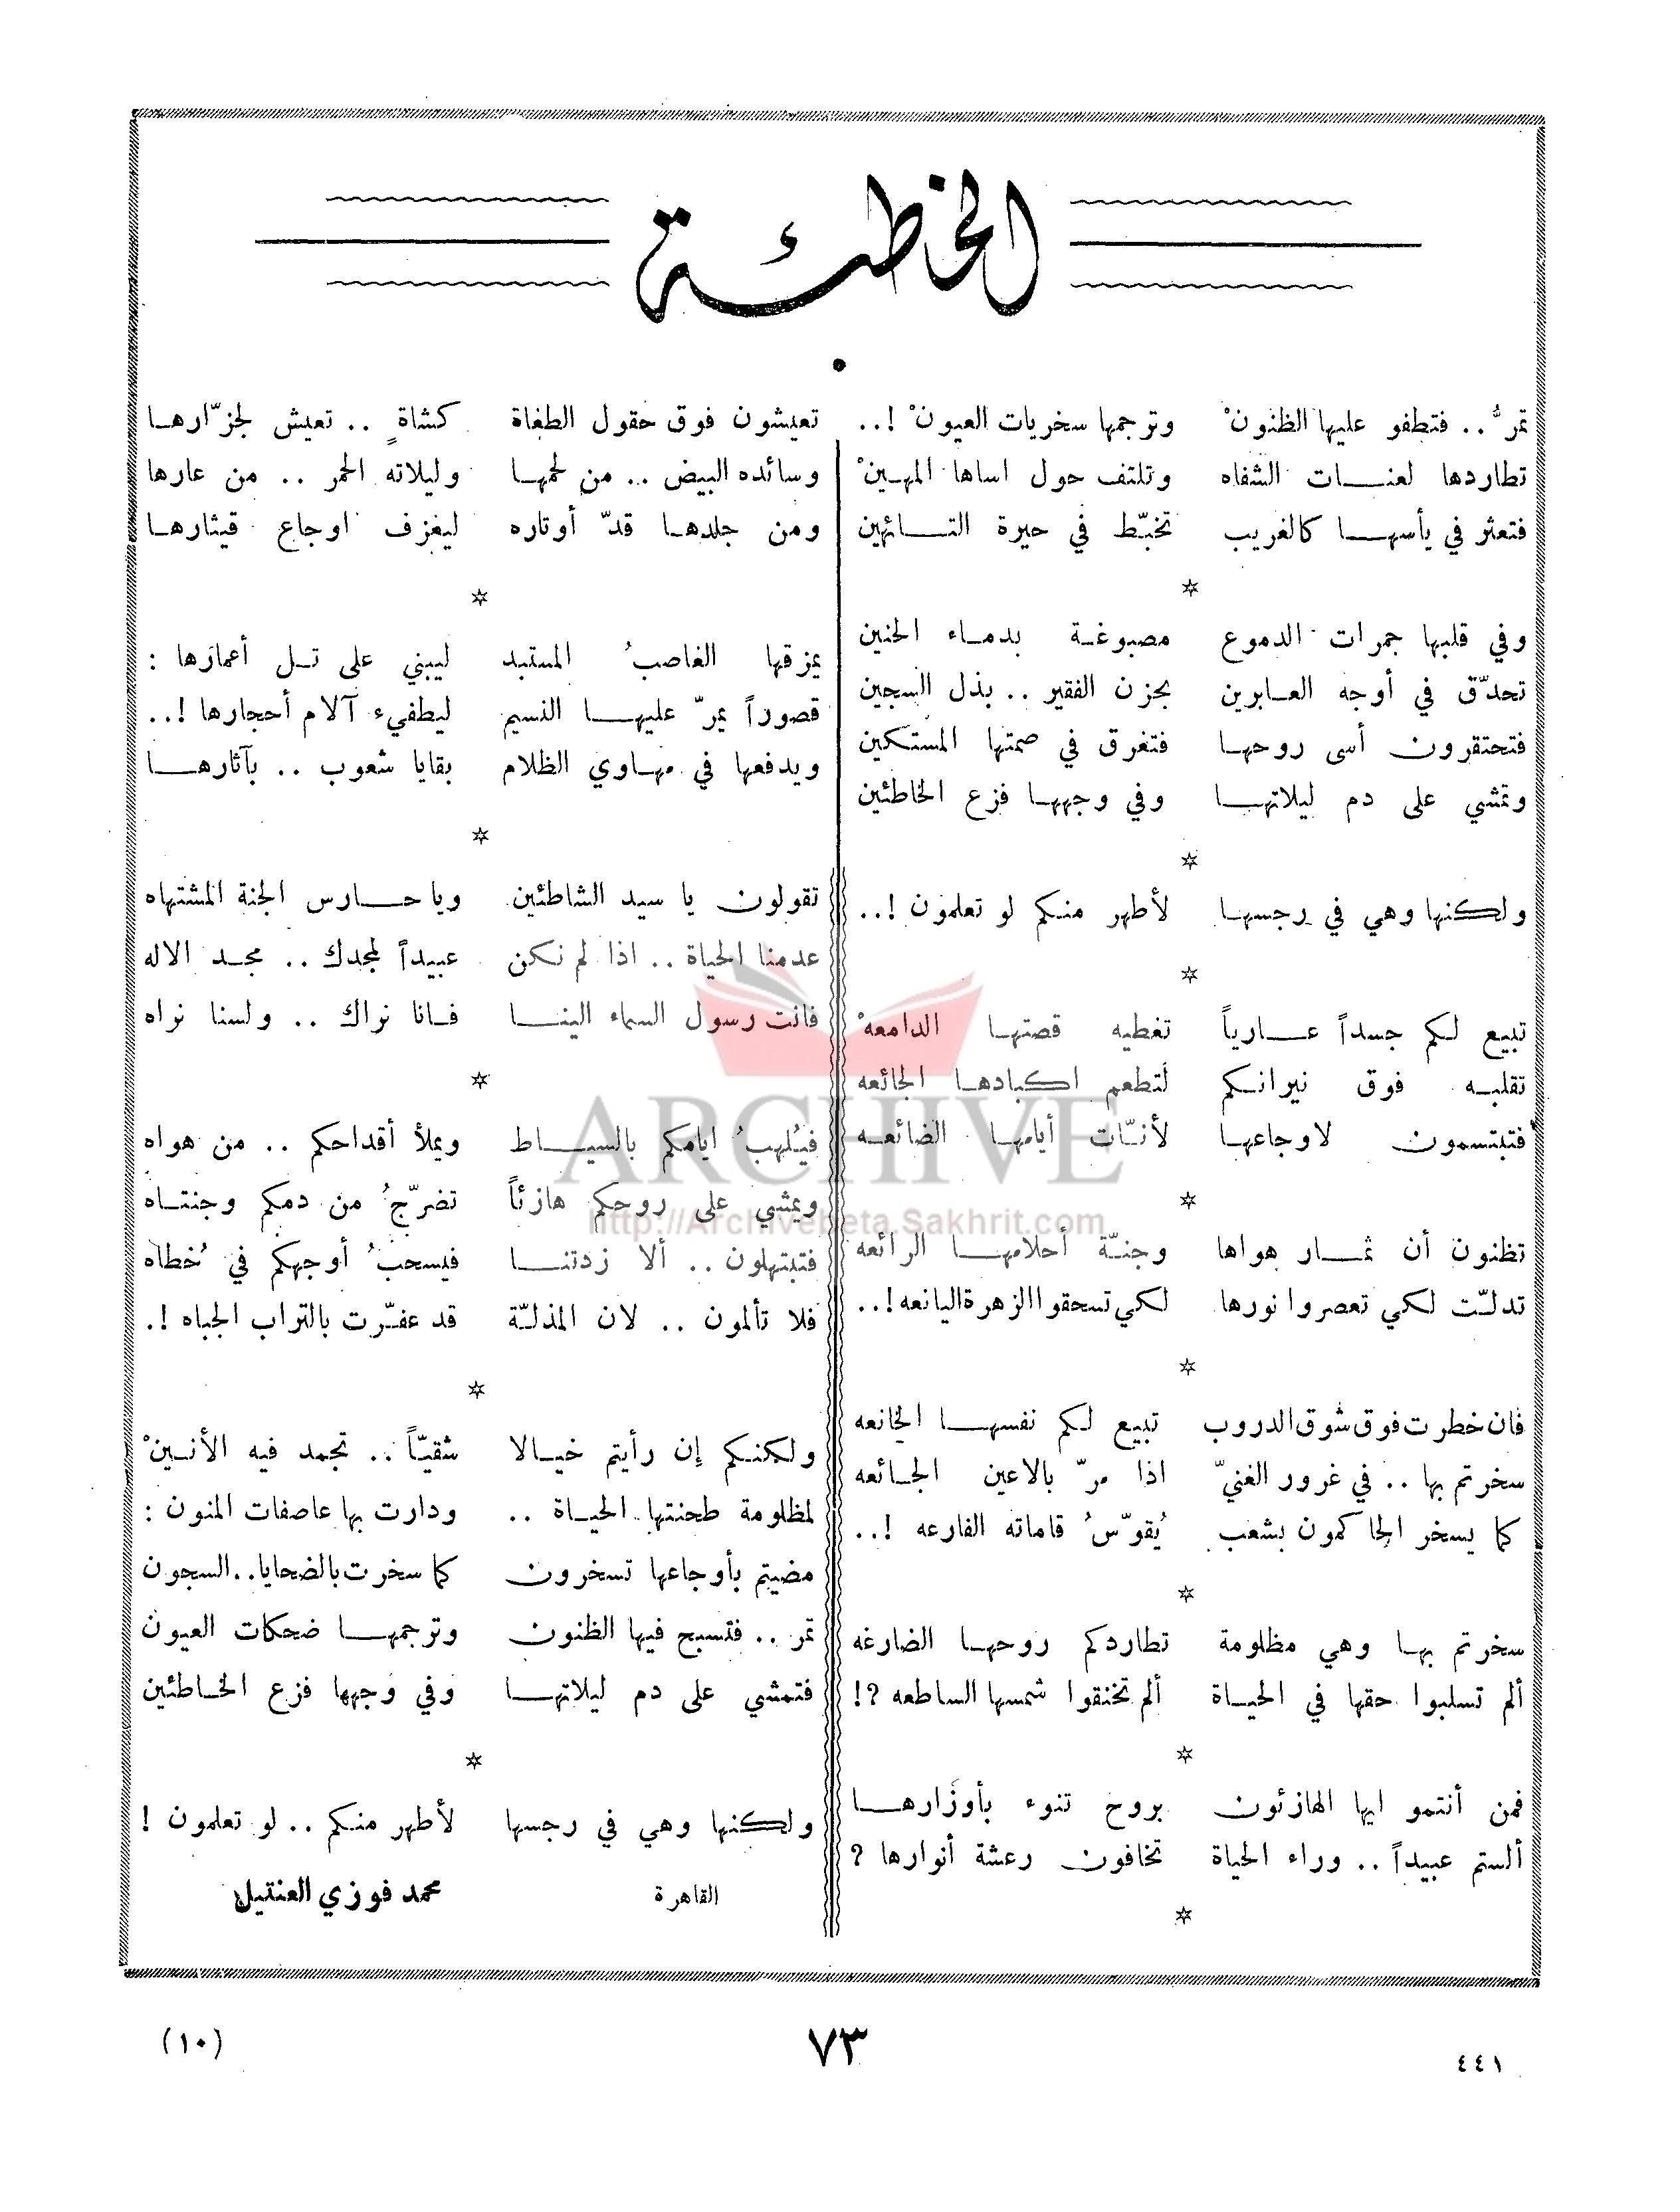 الخطئة
تمرُّ .. فتطفو عليها الظنونْ وترجمها سخريات العيونْ !..
تطاردها لعنات الشفاه وتلتف حول اساها المهينْ
فتعثر في يأسها كالغريب تخبّط في حيرة التائهين
*
وفي قلبها جمرات الدموع مصبوغة بدماء الحنين
تحدّق في أوجه العابرين بحزن الفقير .. بذل السجين
فتحتقرون أسى روحها فتغرق في صمتها المستكين
وتمشي على دم ليلاتها وفي وجهها فزع الخاطئين
*
ولكنها وهي في رجسها لأطهر منكم لو تعلمون !..
*
تبيع لكم جسداً عارياً تغطيه قصتها الدامعهْ
تقلبه فوق نيرانكم لتطعم اكبادها الجائعه
فتبتسمون لاوجاعها لأنّات أيامها الضائعه
*
تظنون أن ثمار هواها وجنّة أحلامها الرائعه
تدلّت لكي تعصروا نورها لكي تسحقوا الزهرة اليانعه !..
*
فان خطرت فوق شوق الدروب تبيع لكم نفسها الخانعه
سخرتم بها .. في غرور الغنيّ اذا مرّ بالاعين الجائعه
كما يسخر الحاكمون بشعب يُقوّسُ قاماته الفارعه !..
*
سخرتم بها وهي مظلومة تطاردكم روحها الضارعه
ألم تسلبوا حقها في الحياة ألم تخنقوا شمسها الساطعه ?!
*
فمن أنتمو ايها الهازئون بروح تنوء بأوزارها
ألستم عبيداً .. وراء الحياة تخافون رعشة أنوارها ?
*
تعيشون فوق حقول الطغاة كشاةٍ .. تعيش لجزّارها
وسائده البيض .. من لحمها وليلاته الحمر .. من عارها
ومن جلدها قدّ أوتاره ليعزف اوجاع قيثارها
*
يمزقها الغاصبُ المستبد ليبني على تل أعمارها :
قصوراً يمرّ عليها النسيم ليطفيء آلام أحجارها !..
ويدفعها في مهاوي الظلام بقايا شعوب .. بآثارها
*
تقولون يا سيد الشاطئين ويا حارس الجنة المشتهاه
عدمنا الحياة .. اذا لم نكن عبيداً لمجدك .. مجد الاله
فانت رسول السماء الينا فانا نراك .. ولسنا نراه
*
فيُلهبُ ايامكم بالسياط ويملأ أقداحكم .. من هواه
ويمشي على روحكم هازئاً تضرّجُ من دمكم وجنتاه
فتبتهلون .. ألا زدتنا فيسحبُ أوجهكم في خُطاه
فلا تألمون .. لان المذلّة قد عفّرت بالتراب الجباه !.
*
ولكنكم إن رأيتم خيالا شقيّاً .. تجمد فيه الأنينْ
لمظلومة طحنتها الحياة .. ودارت بها عاصفات المنون :
مضيتم بأوجاعها تسخرون كما سخرت بالضحايا .. السجون
تمر .. فتسبح فيها الظنون وترجمها ضحكات العيون
فتمشي على دم ليلاتها وفي وجهها فزع الخاطئين
*
ولكنها وهي في رجسها لأطهر منكم .. لو تعلمون !
القاهرة محمد فوزي العنتيل
ARCHIVE
http://Archivebeta.Sakhrit.com
٤٤١ ٧٣ (١٠)